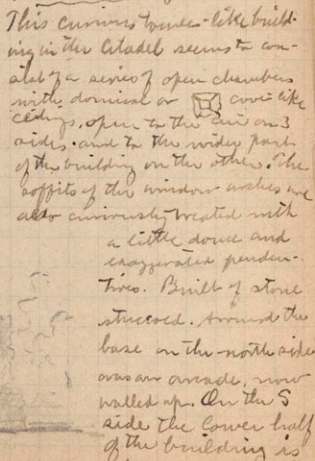 This curious tower-like build-
ing in the Citadel seems to con-
sist of a series of open chambers
with domical or cove-like
ceilings, open to the air on 3
sides and to the wider part
of the building on the other. The
soffits of the window arches are
also curiously treated with
a little dome and
exaggerated penden-
tives. Built of stone
stuccoed. Around the
base on the north side
was an arcade, now
walled up. On the S
side the lower half
of the building is